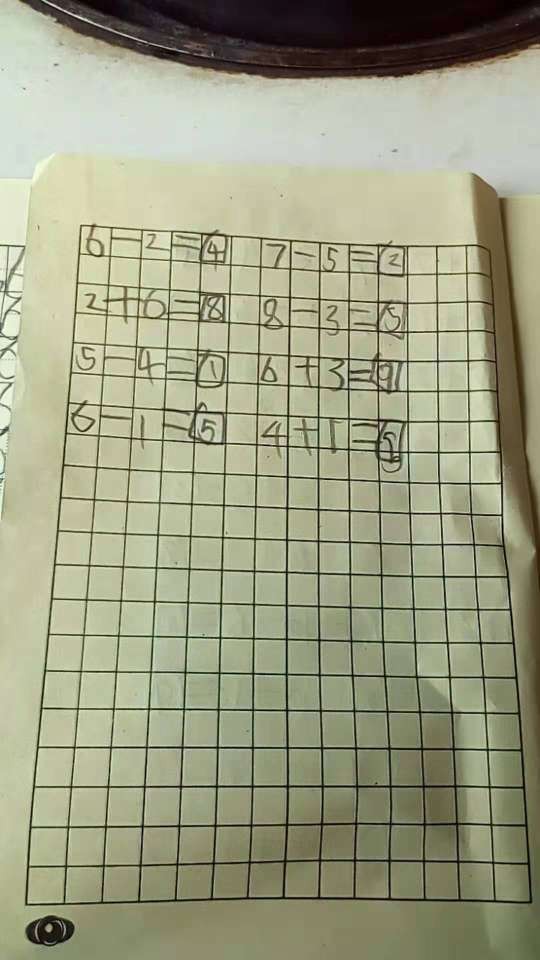 6-2=4 7-5=2
2+6=8 8-3=5
5-4=1 6+3=9
6-1=5 4+1=5